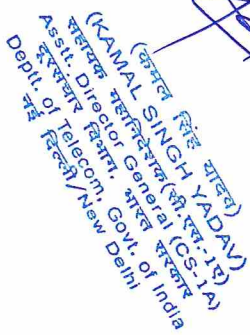 (कमल सिंह यादव)
(KAMAL SINGH YADAV)
सहायक महानिदेशक (सी.एस.-1ए)
Asst. Director General (CS-1A)
दूरसंचार विभाग, भारत सरकार
Deptt. of Telecom, Govt. of India
नई दिल्ली/New Delhi